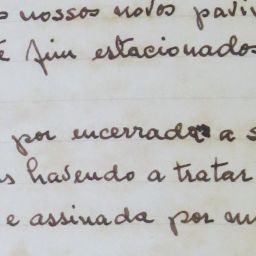 nossos novos
fim estacionados
por encerrada a
havendo a tratar
e assinada por